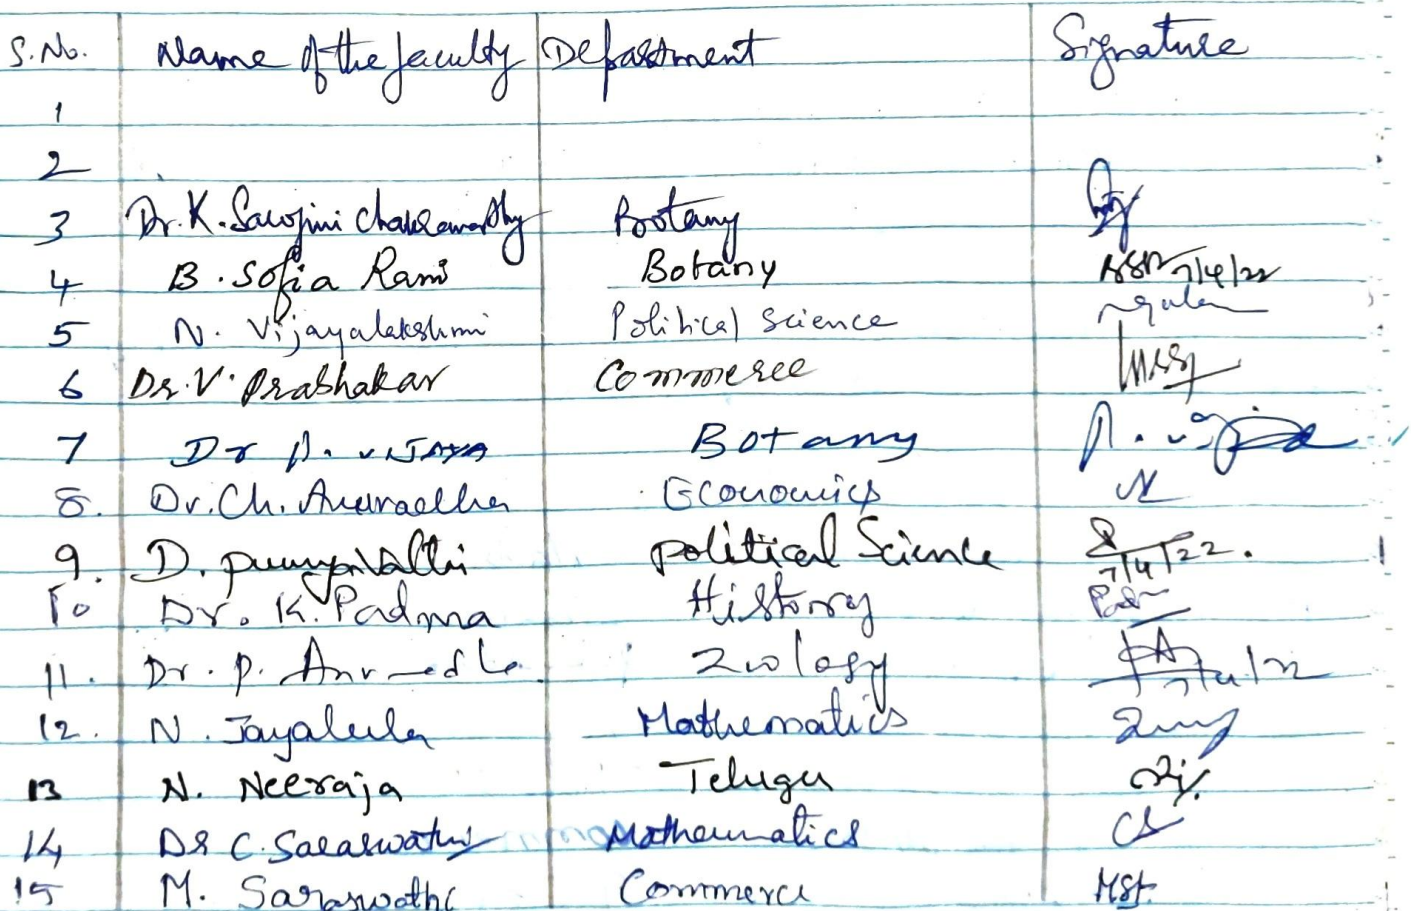 S.No. Name of the faculty Department Signature
1
2
3 Dr. K. Sarojini Chakravarthy Botany
4 B. Sofia Rani Botany 7/4/22
5 N. Vijayalakshmi Political Science
6 Dr. V. Prabhakar Commerce
7 Dr A. VIJAYA Botany
8. Dr. Ch. Anuradha Economics
9. D. Pushpavathi Political Science 7/4/22.
10 Dr. K. Padma History
11. Dr. P. Anuradha Zoology 7/4/22
12. N. Jayalula Mathematics
13 N. Neeraja Telugu
14 Dr C. Saraswathi Mathematics
15 M. Saraswathi Commerce